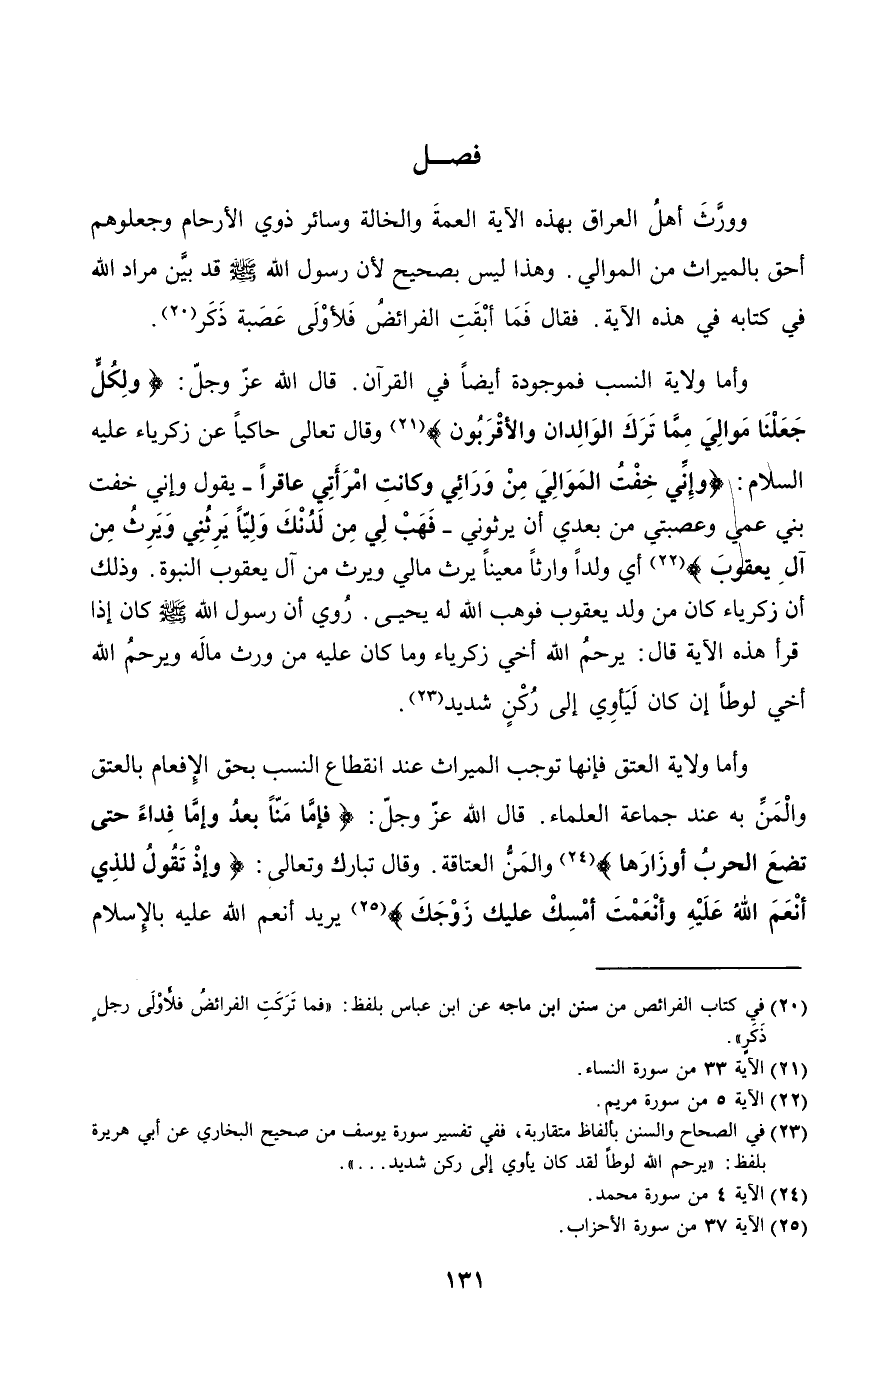 فصـــل
وورَّثَ أهلُ العراق بهذه الآية العمةَ والخالة وسائر ذوي الأرحام وجعلوهم
أحق بالميراث من الموالي. وهذا ليس بصحيح لأن رسول الله ﷺ قد بيَّن مراد الله
في كتابه في هذه الآية. فقال فَمَا أبْقَتِ الفرائضُ فَلأوْلَى عَصَبة ذَكَر(٢٠).
وأما ولاية النسب فموجودة أيضاً في القرآن. قال الله عزّ وجلّ: ﴿ ولِكُلٍّ
جَعَلْنَا مَوالِيَ مِمَّا تَرَكَ الوَالِدان والأقْرَبُون ﴾(٢١) وقال تعالى حاكياً عن زكرياء عليه
السلام: ﴿وإنِّي خِفْتُ المَوَالِيَ مِنْ وَرَائِي وكانتِ امْرَأَتِي عاقراً ـ يقول وإني خفت
بني عمي وعصبتي من بعدي أن يرثوني ـ فَهَبْ لِي مِن لَدُنْكَ وَلِيّاً يَرِثُنِي وَيَرِثُ مِن
آلِ يعقوبَ ﴾(٢٢) أي ولداً وارثاً معيناً يرث مالي ويرث من آل يعقوب النبوة. وذلك
أن زكرياء كان من ولد يعقوب فوهب الله له يحيـى. رُوي أن رسول الله ﷺ كان إذا
قرأ هذه الآية قال: يرحمُ الله أخي زكرياء وما كان عليه من ورث مالَه ويرحمُ الله
أخي لوطاً إن كان لَيَأوِي إلى رُكْنٍ شديد(٢٣).
وأما ولاية العتق فإنها توجب الميراث عند انقطاع النسب بحق الإِفعام بالعتق
والْمَنِّ به عند جماعة العلماء. قال الله عزّ وجلّ: ﴿ فإمَّا مَنّاً بعدُ وإمَّا فِداءً حتى
تضعَ الحربُ أوزَارَها ﴾(٢٤) والمَنُّ العتاقة. وقال تبارك وتعالى: ﴿ وإذْ تَقُولُ للذِي
أنْعَمَ اللهُ عَلَيْهِ وأنْعَمْتَ أمْسِكْ عليك زَوْجَكَ ﴾(٢٥) يريد أنعم الله عليه بالإِسلام
(٢٠) في كتاب الفرائص من سنن ابن ماجه عن ابن عباس بلفظ: «فما تَرَكَتِ الفرائضُ فلأوْلَى رجلٍ
ذَكَرٍ».
(٢١) الآية ٣٣ من سورة النساء.
(٢٢) الآية ٥ من سورة مريم.
(٢٣) في الصحاح والسنن بألفاظ متقاربة، ففي تفسير سورة يوسف من صحيح البخاري عن أبي هريرة
بلفظ: «يرحم الله لوطاً لقد كان يأوي إلى ركن شديد...».
(٢٤) الآية ٤ من سورة محمد.
(٢٥) الآية ٣٧ من سورة الأحزاب.
١٣١